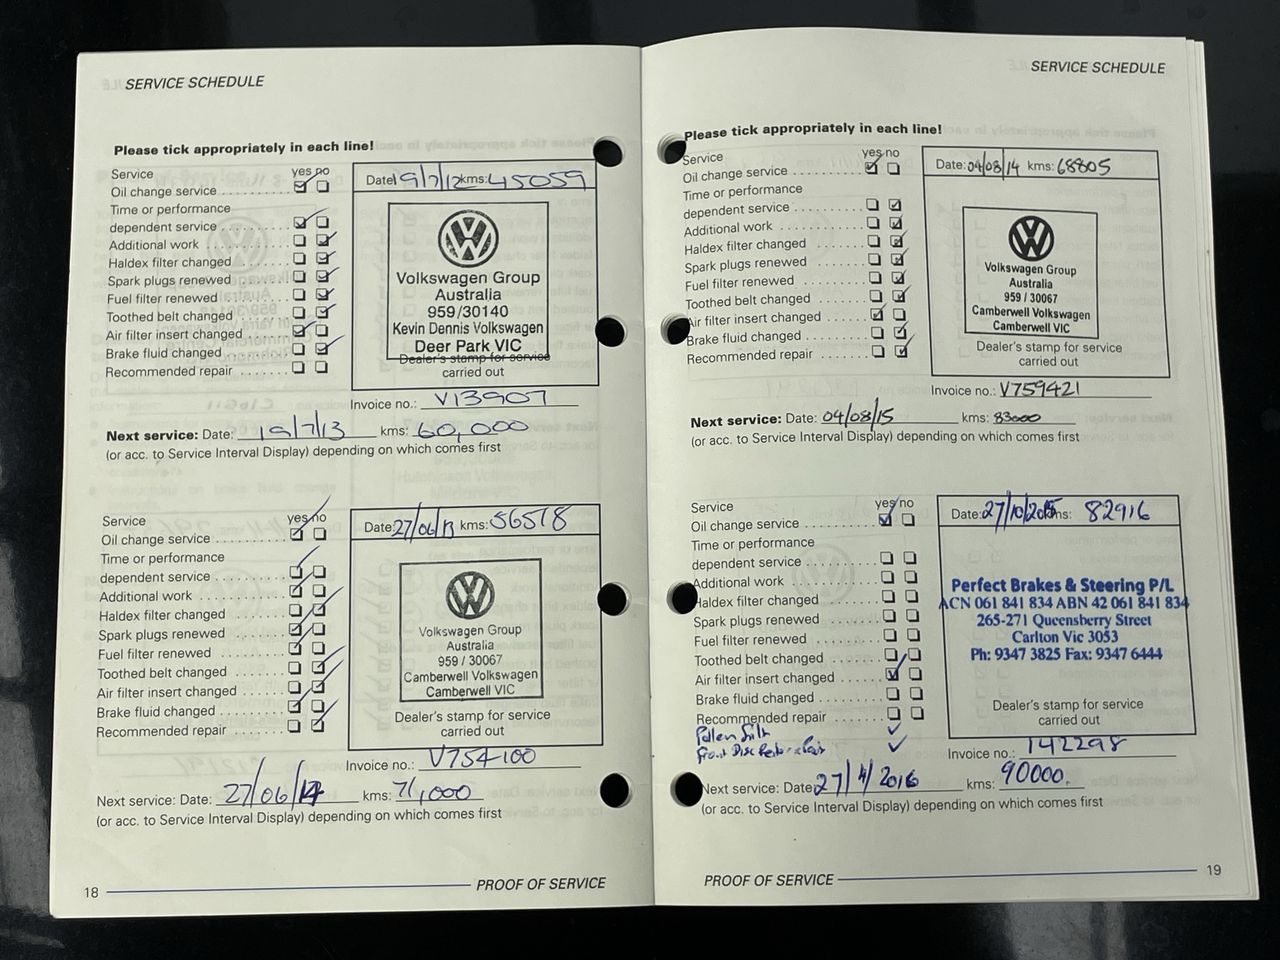 SERVICE SCHEDULE
Please tick appropriately in each line!
Service yes no
Oil change service
Time or performance
dependent service
Additional work
Haldex filter changed
Spark plugs renewed
Fuel filter renewed
Toothed belt changed
Air filter insert changed
Brake fluid changed
Recommended repair
Date: 19/7/12 kms: 45059
Volkswagen Group
Australia
959/30140
Kevin Dennis Volkswagen
Deer Park VIC
Dealer's stamp for service
carried out
Invoice no.: V13907
Next service: Date: 19/7/13 kms: 60,000
(or acc. to Service Interval Display) depending on which comes first
Service yes no
Oil change service
Time or performance
dependent service
Additional work
Haldex filter changed
Spark plugs renewed
Fuel filter renewed
Toothed belt changed
Air filter insert changed
Brake fluid changed
Recommended repair
Date: 27/06/13 kms: 56578
Volkswagen Group
Australia
959 / 30067
Camberwell Volkswagen
Camberwell VIC
Dealer's stamp for service
carried out
Invoice no.: V754100
Next service: Date: 27/06/14 kms: 71,000
(or acc. to Service Interval Display) depending on which comes first
18 PROOF OF SERVICE
SERVICE SCHEDULE
Please tick appropriately in each line!
Service yes no
Oil change service
Time or performance
dependent service
Additional work
Haldex filter changed
Spark plugs renewed
Fuel filter renewed
Toothed belt changed
Air filter insert changed
Brake fluid changed
Recommended repair
Date: 04/08/14 kms: 68805
Volkswagen Group
Australia
959 / 30067
Camberwell Volkswagen
Camberwell VIC
Dealer's stamp for service
carried out
Invoice no.: V759421
Next service: Date: 04/08/15 kms: 83000
(or acc. to Service Interval Display) depending on which comes first
Service yes no
Oil change service
Time or performance
dependent service
Additional work
Haldex filter changed
Spark plugs renewed
Fuel filter renewed
Toothed belt changed
Air filter insert changed
Brake fluid changed
Recommended repair
Pollen
Front Disc
Date: 27/10/2015 kms: 82916
Perfect Brakes & Steering P/L
ACN 061 841 834 ABN 42 061 841 834
265-271 Queensberry Street
Carlton Vic 3053
Ph: 9347 3825 Fax: 9347 6444
Dealer's stamp for service
carried out
Invoice no.: 142298
Next service: Date: 27/4/2016 kms: 90000.
(or acc. to Service Interval Display) depending on which comes first
PROOF OF SERVICE 19